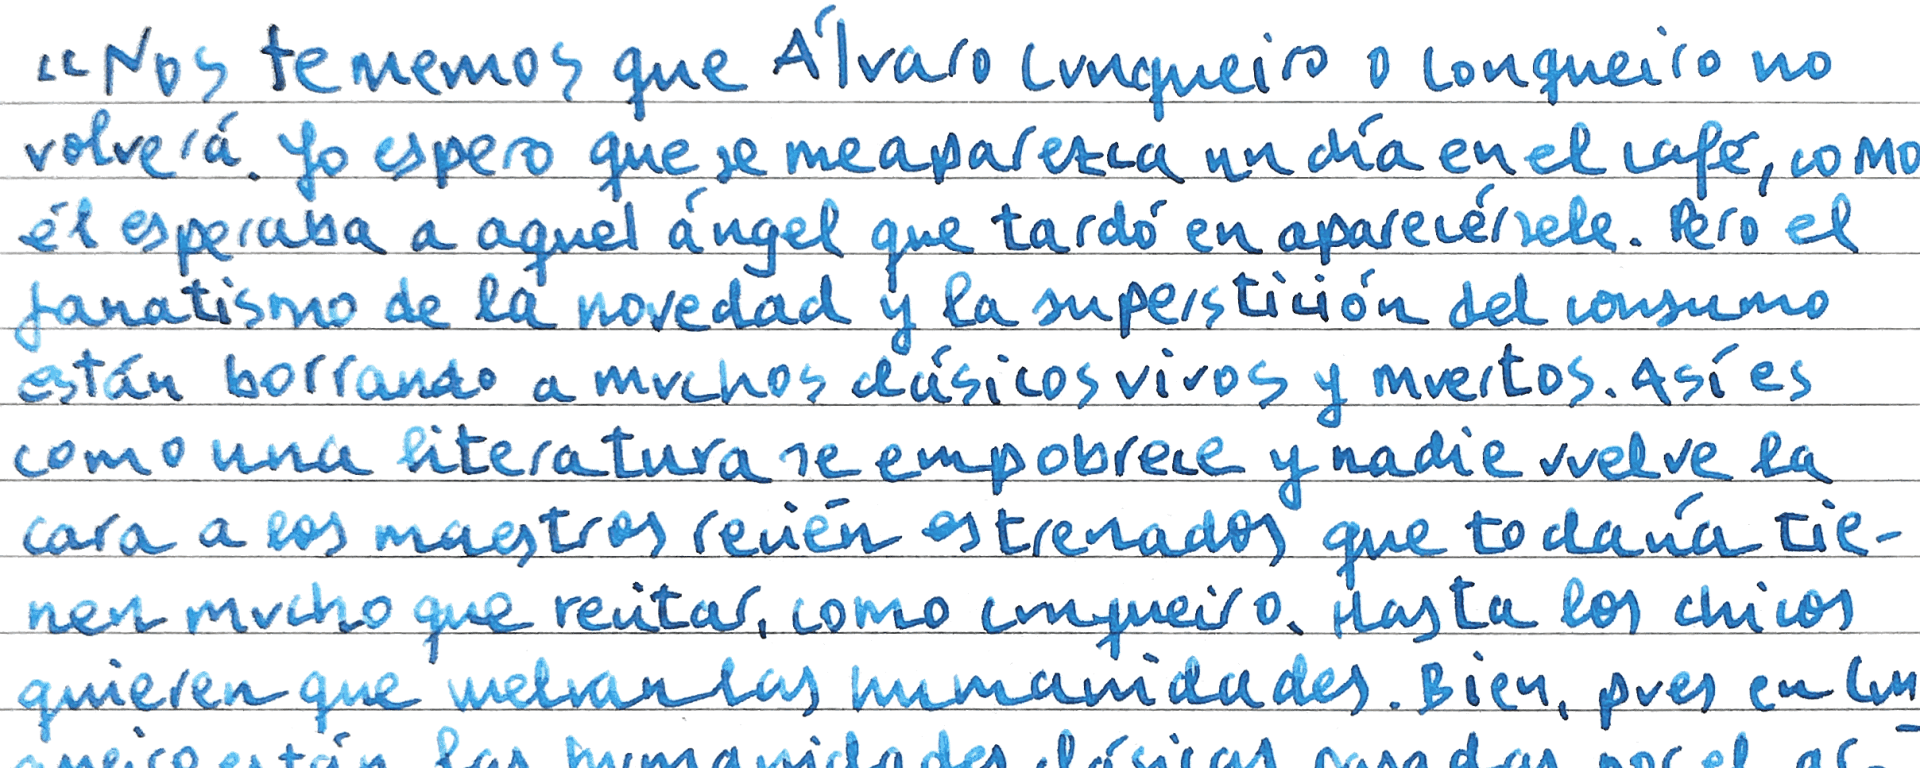 "Nos tememos que Álvaro Cunqueiro o Conqueiro no
volverá. Yo espero que se me aparezca un día en el café, como
él esperaba a aquel ángel que tardó en aparecérsele. Pero el
fanatismo de la novedad y la superstición del consumo
están borrando a muchos clásicos vivos y muertos. Así es
como una literatura se empobrece y nadie vuelve la
cara a los maestros recién estrenados que todavía tie-
nen mucho que recitar, como Cunqueiro. Hasta los chicos
quieren que vuelvan las humanidades. Bien, pues en Cun
queiro están las humanidades clásicas pasadas por el ar-